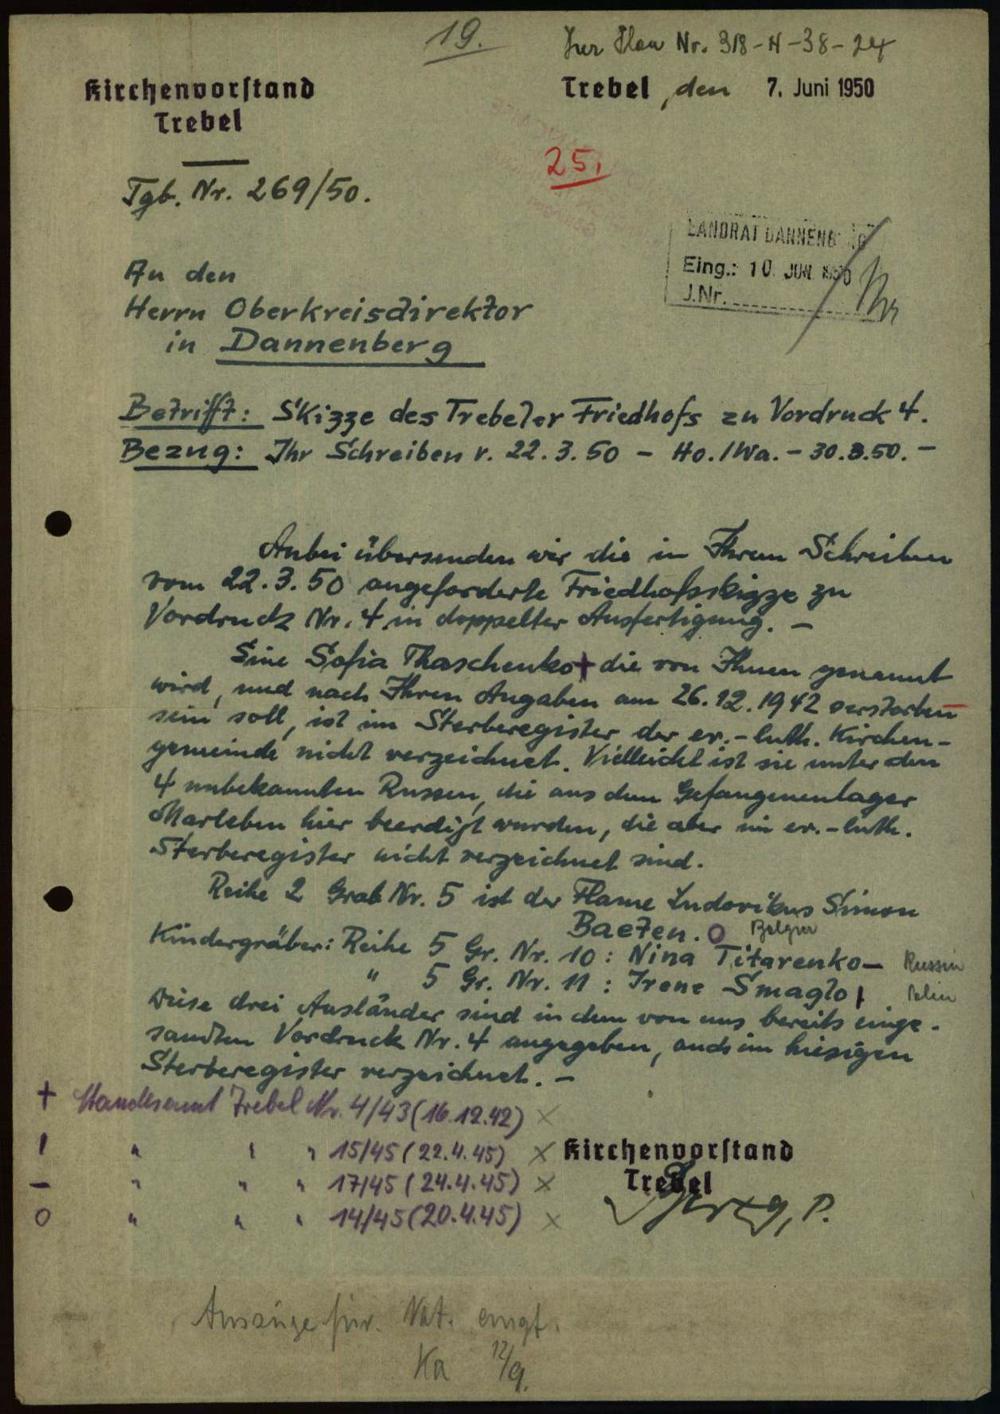 19.
Nr. 318-H-38-24
Kirchenvorstand
Trebel
Trebel, den 7. Juni 1950
25.
Tgb. Nr. 269/50.
LANDRAT DANNENB
Eing.: 10. JUN. 1950
J.Nr.
An den
Herrn Oberkreisdirektor
in Dannenberg
Betrifft: Skizze des Trebeler Friedhofs zu Vordruck 4.
Bezug: Ihr Schreiben v. 22.3.50 - Ho./Wa. - 30.3.50. -
Anbei übersenden wir die in Ihrem Schreiben
vom 22.3.50 angeforderte Friedhofsskizze zu
Vordruck Nr. 4 in doppelter Ausfertigung. -
Eine Sofia Thaschenko + die von Ihnen genannt
wird, und nach Ihren Angaben am 26.12.1942 verstorben
sein soll, ist im Sterberegister der ev.-luth. Kirchen-
gemeinde nicht verzeichnet. Vielleicht ist sie unter den
4 unbekannten Russen, die aus dem Gefangenenlager
Marleben hier beerdigt wurden, die aber im ev.-luth.
Sterberegister nicht verzeichnet sind.
Reihe 2 Grab Nr. 5 ist der Flame Ludovikus Simon
Baeten. O Belgier
Kindergräber: Reihe 5 Gr. Nr. 10 : Nina Titarenko - Russin
" 5 Gr. Nr. 11 : Irene Smaglo | Polin
Diese drei Ausländer sind in dem von uns bereits einge-
sandten Vordruck Nr. 4 angegeben, auch im hiesigen
Sterberegister verzeichnet. -
+ Standesamt Trebel Nr. 4/43 (16.12.42) x
| " " " 15/45 (22.4.45) x
- " " " 17/45 (24.4.45) x
O " " " 14/45 (20.4.45) x
Kirchenvorstand
Trebel
P.
Auszüge für Nat. eingt.
Ka 12/9.